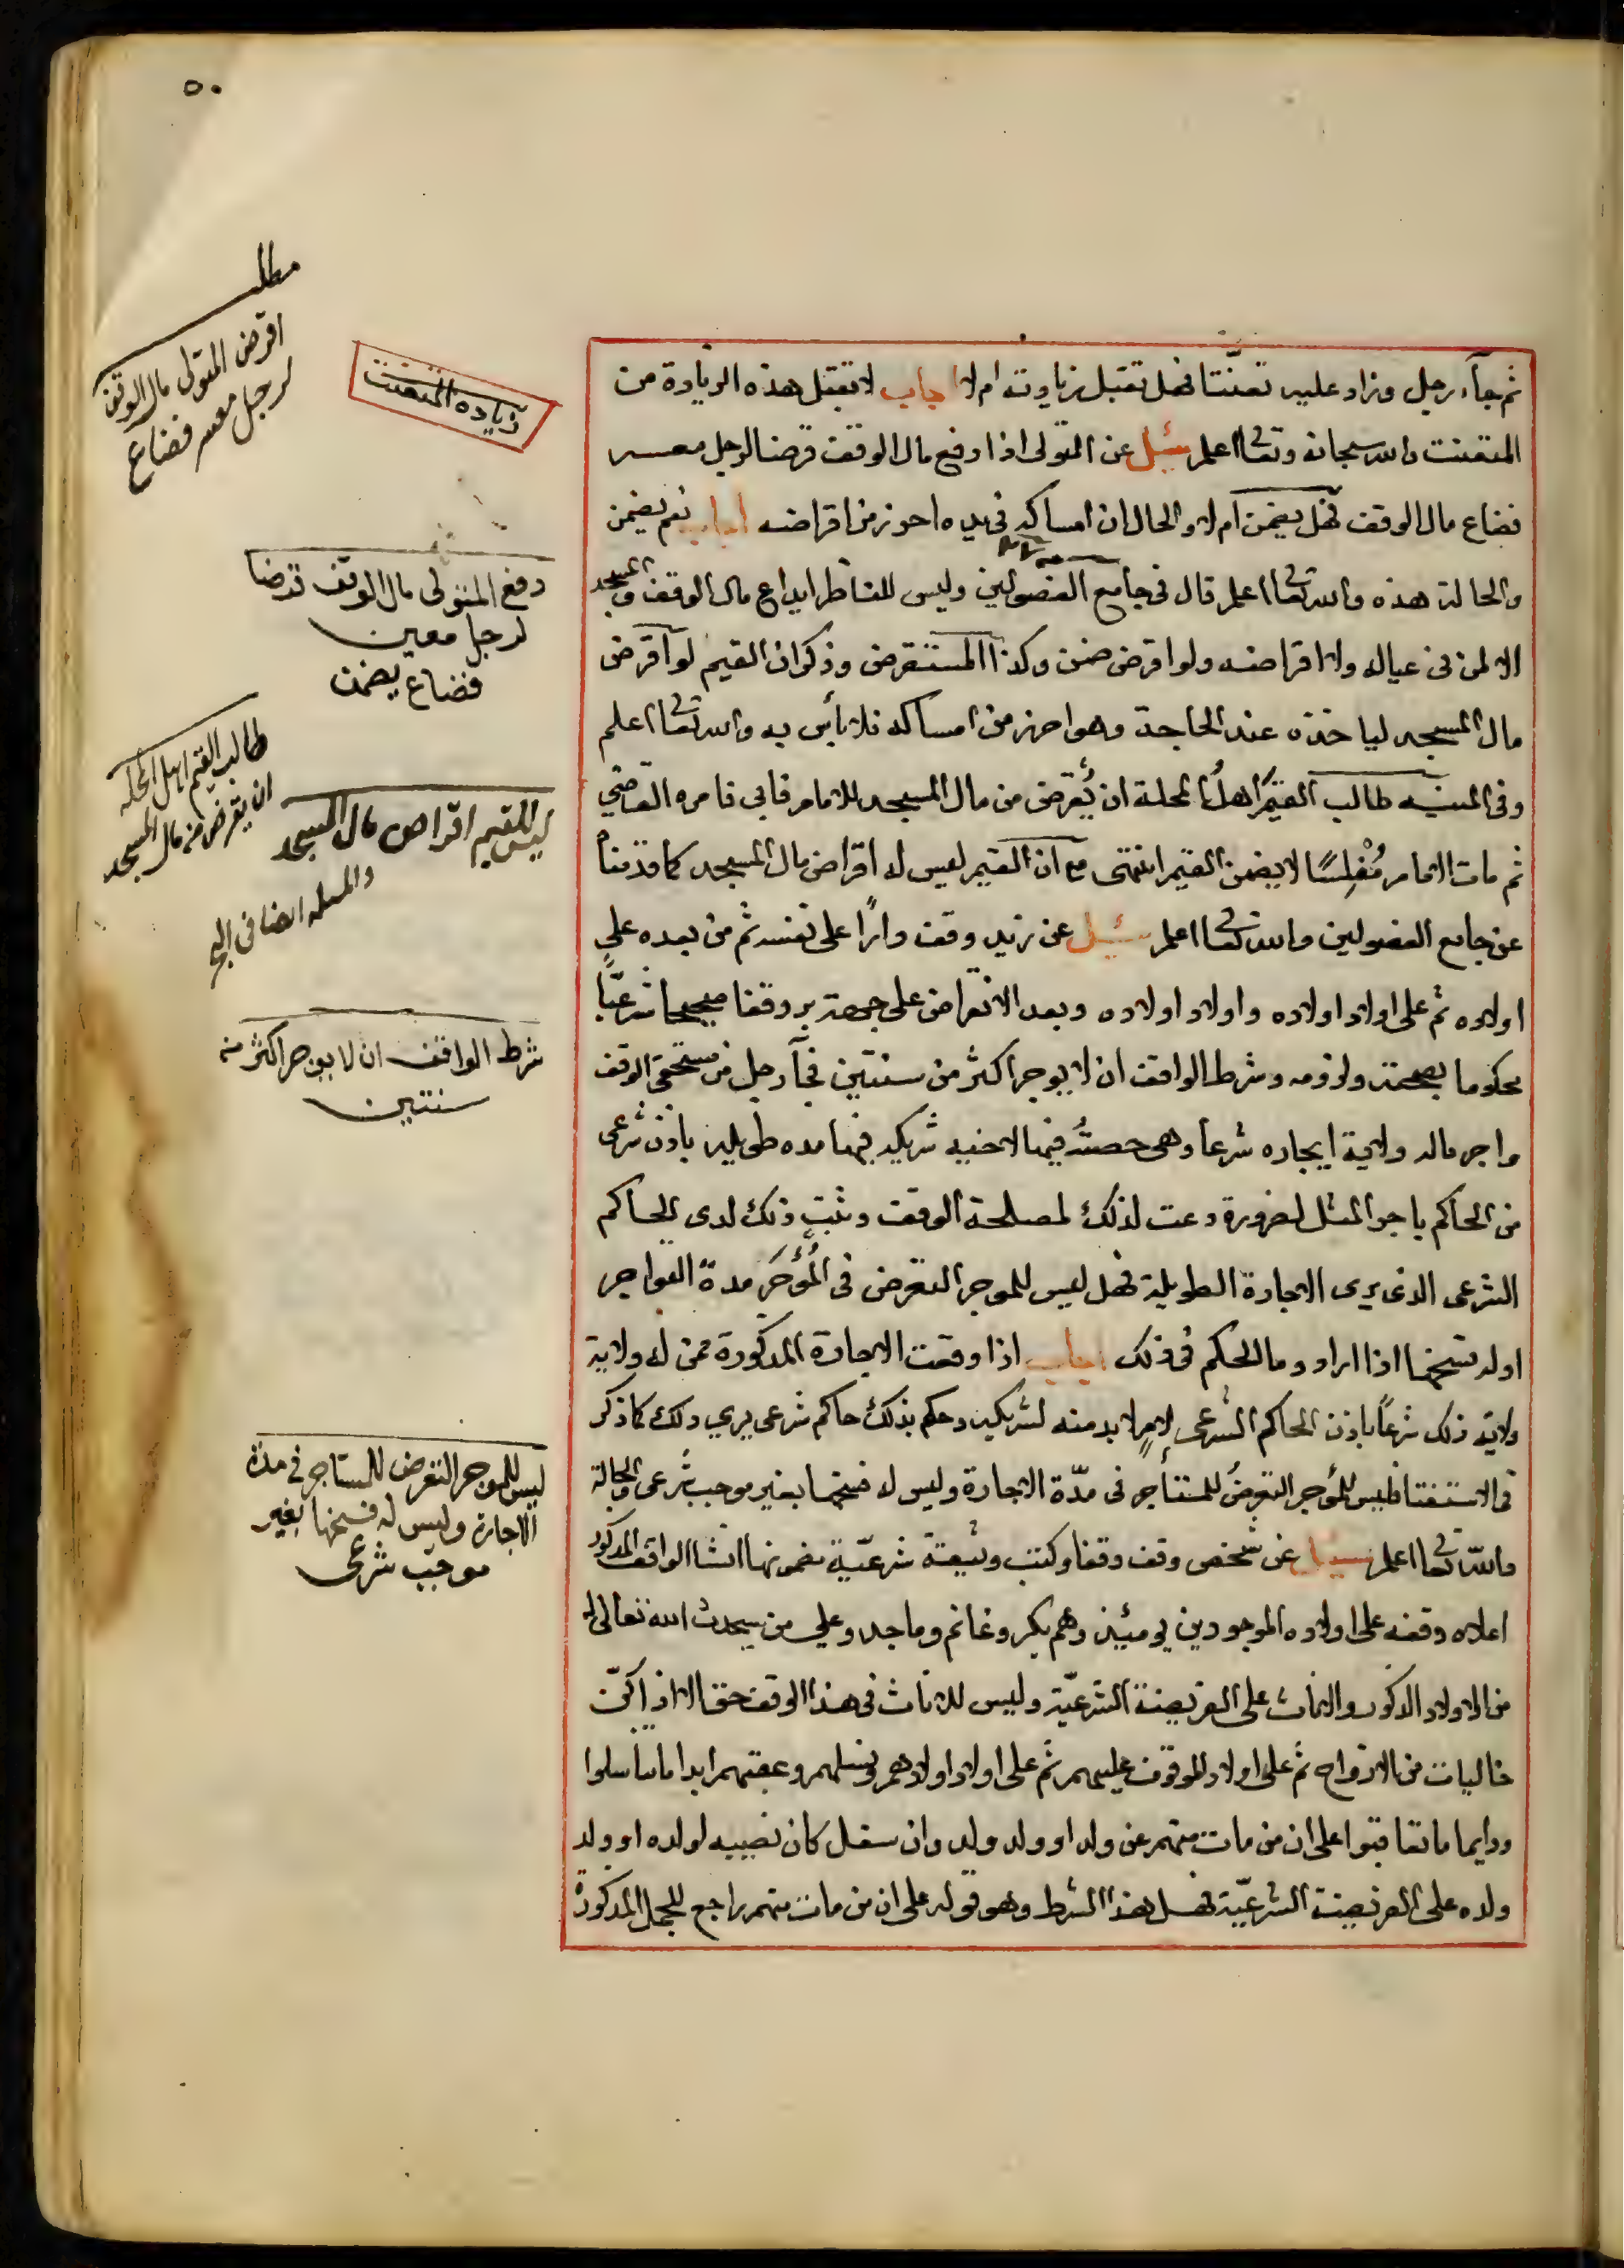 ٥٠
ثم جآء رجل وزاد عليه تعنّتا فهل تقبل زيادته ام لا اجاب لا تقبل هذه الزيادة من
المتعنت والله سبحانه وتعالى اعلم سئل عن المتولى اذا دفع مال الوقف قرضا لرجل معسر
فضاع مال الوقف فهل يضمن ام لا والحال ان امساكه فى يده احوز من اقراضه اجاب نعم يضمن
والحالة هذه والله تعالى اعلم قال فى جامع الفصولين وليس للناظر ايداع مال الوقف والمسجد
الا لمن فى عياله ولا اقراضه ولو اقرض ضمن وكذا المستقرض وذكر ان القيم لو اقرض
مال المسجد لياخذه عند الحاجة وهو احرز من امساكه فلا بأس به والله تعالى اعلم
وفى المنيه طالب القيّم اهلُ المحلة ان يُقرض من مال المسجد للامام فابى فامره القاضي
ثم مات الامام مُفْلِسًا لا يضمن القيم انتهى مع ان القيم ليس له اقراض مال المسجد كما قدمناه
عن جامع الفصولين والله تعالى اعلم سئل عن زيد وقف دارًا على نفسه ثم من بعده على
اولاده ثم على اولاد اولاده واولاد اولاده وبعد الانقراض على جهة بر وقفا صحيحا شرعيًّا
محكوما بصحته ولزومه وشرط الواقف ان لا يوجر اكثر من سنتين فجآء رجل من مستحقى الوقف
واجر ماله ولاية ايجاره شرعا وهى حصتُه فيها لاخيه شريكه فيها مده طويلة باذن شرعى
من الحاكم باجر المثل لضرورة دعت لذلك لمصلحة الوقف وثبت ذلك لدى الحاكم
الشرعى الذى يرى الاجارة الطويلة فهل ليس للموجر التعرض فى المُؤَجَر مدة التواجر
او له فسخها اذا اراد وما الحكم فى ذلك اجاب اذا وقعت الاجارة المذكورة ممن له ولاية
ولاية ذلك شرعًا باذن الحاكم الشرعى لامرٍ لا بد منه لشريكه وحكم بذلك حاكم شرعى يرى ذلك كما ذكر
فى الاستفتا فليس للمُؤجر التعرضُ للمستأجر فى مدّة الاجارة وليس له فسخها بغير موجب شرعى والحالة هذه
والله تعالى اعلم سئل عن شخص وقف وقفا وكتب وثيقة شرعيّة مضمونها انشا الواقف المذكور
اعلاه وقفه على اولاده الموجودين يومئِذ وهم بكر وغانم وماجد وعلى من سيحدث الله تعالى له
من الاولاد الذكور والاناث على الفريضة الشرعيّة وليس للاناث فى هذا الوقف حق الا اذا كنّ
خاليات من الازواج ثم على اولاد الموقوف عليهم ثم على اولاد اولادهم ونسلهم وعقبهم ابدا ما تناسلوا
ودايما ما تعاقبوا على ان من مات منهم عن ولد او ولد ولد وان سفل كان نصيبه لولده او ولد
ولده على الفريضة الشرعيّة فهل هذا الشرط وهو قوله على ان من مات منهم راجع للجمل المذكورة
زياده المتعنت
مطلب
اقرض المتولى مال الوقف
لرجل معسر فضاع
دفع المتولى مال الوقف قرضا
لرجل معين
فضاع يضمن
طالب القيم اهل المحله
ان يقرض من مال المسجد
ليس للقيم اقراض مال المسجد
والمسله ايضا فى
شرط الواقف ان لا يوجر اكثر من
سنتين
ليس للموجر التعرض للمستاجر فى مدة
الاجارة وليس له فسخها بغير
موجب شرعى